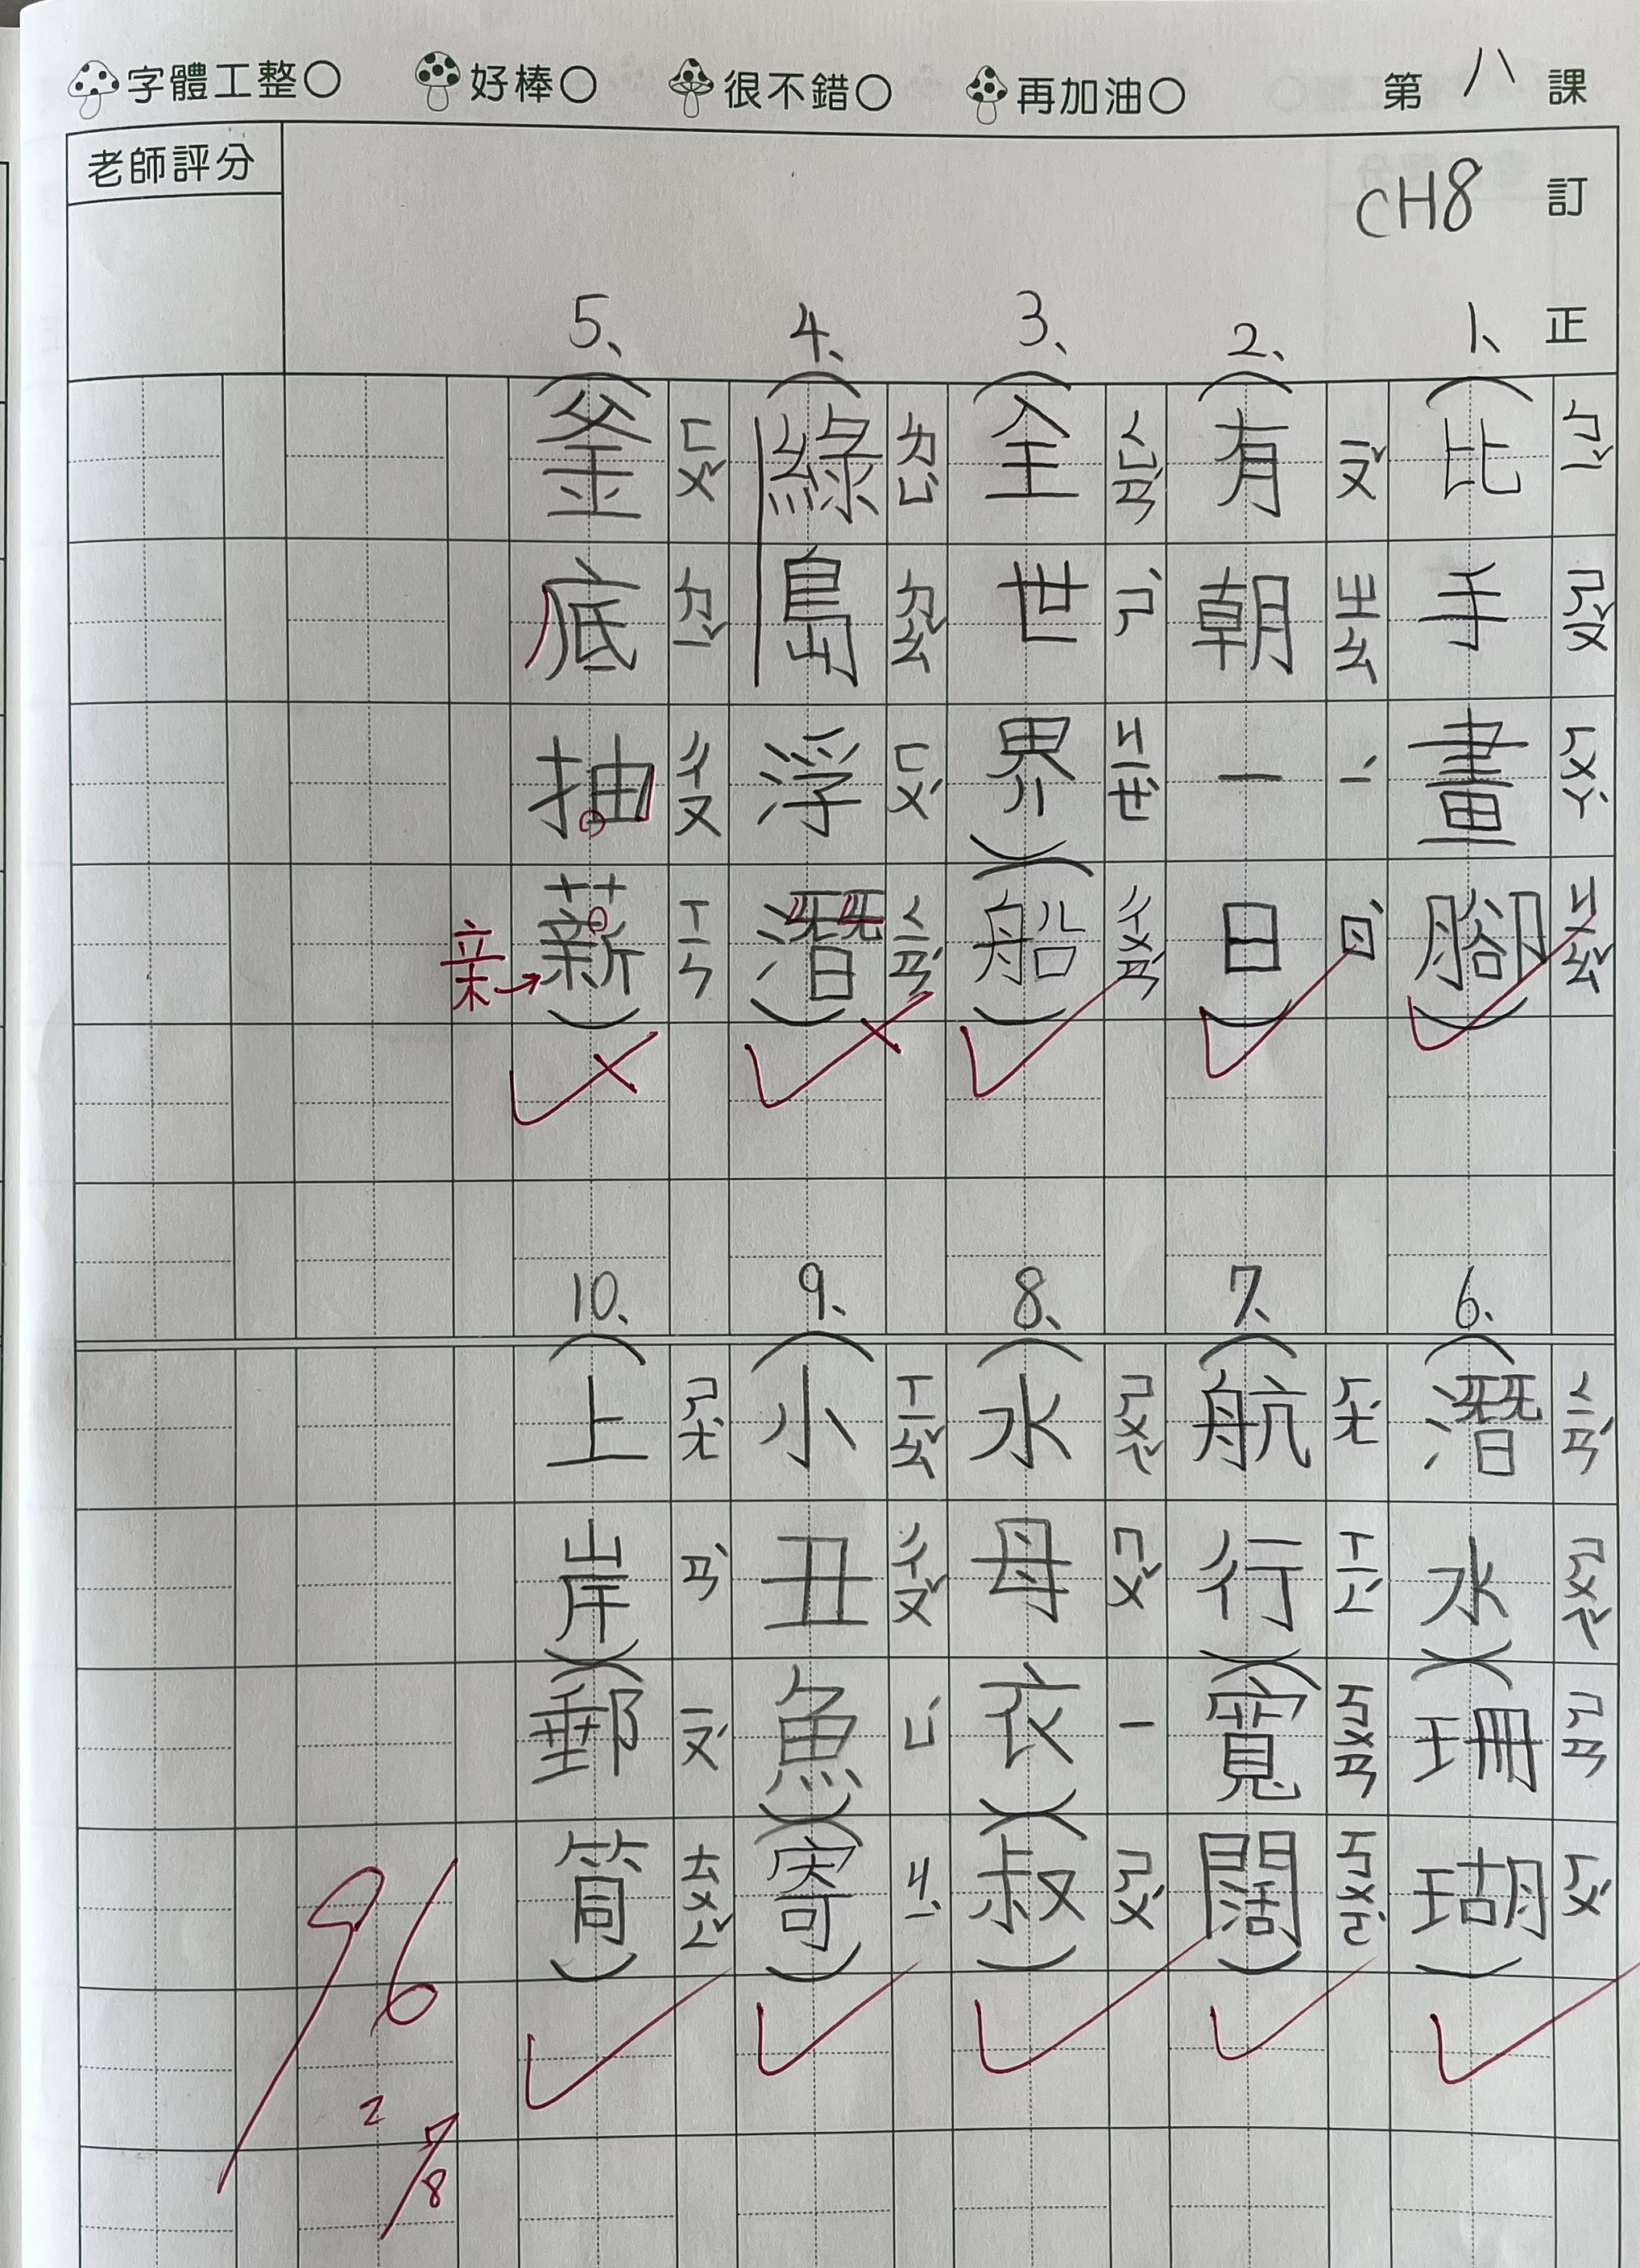 字體工整○ 好棒○ 很不錯○ 再加油○ 第八課
老師評分
訂正
CH8
1、(比手畫腳) ㄅㄧˇ ㄕㄡˇ ㄏㄨㄚˋ ㄐㄧㄠˇ
2、(有朝一日) ㄧㄡˇ ㄓㄠ ㄧˊ ㄖˋ
3、(全世界)(船) ㄑㄩㄢˊ ㄕˋ ㄐㄧㄝˋ ㄔㄨㄢˊ
4、(綠島浮潛) ㄌㄩˋ ㄉㄠˇ ㄈㄨˊ ㄑㄧㄢˊ
5、(釜底抽薪) ㄈㄨˇ ㄉㄧˇ ㄔㄡ ㄒㄧㄣ
亲→
6、(潛水)(珊瑚) ㄑㄧㄢˊ ㄕㄨㄟˇ ㄕㄢ ㄏㄨˊ
7、(航行)(寬闊) ㄏㄤˊ ㄒㄧㄥˊ ㄎㄨㄢ ㄎㄨㄛˋ
8、(水母衣)(叔) ㄕㄨㄟˇ ㄇㄨˇ ㄧ ㄕㄨˊ
9、(小丑魚)(寄) ㄒㄧㄠˇ ㄔㄡˇ ㄩˊ ㄐㄧˋ
10、(上岸)(郵筒) ㄕㄤˋ ㄢˋ ㄧㄡˊ ㄊㄨㄥˇ
96